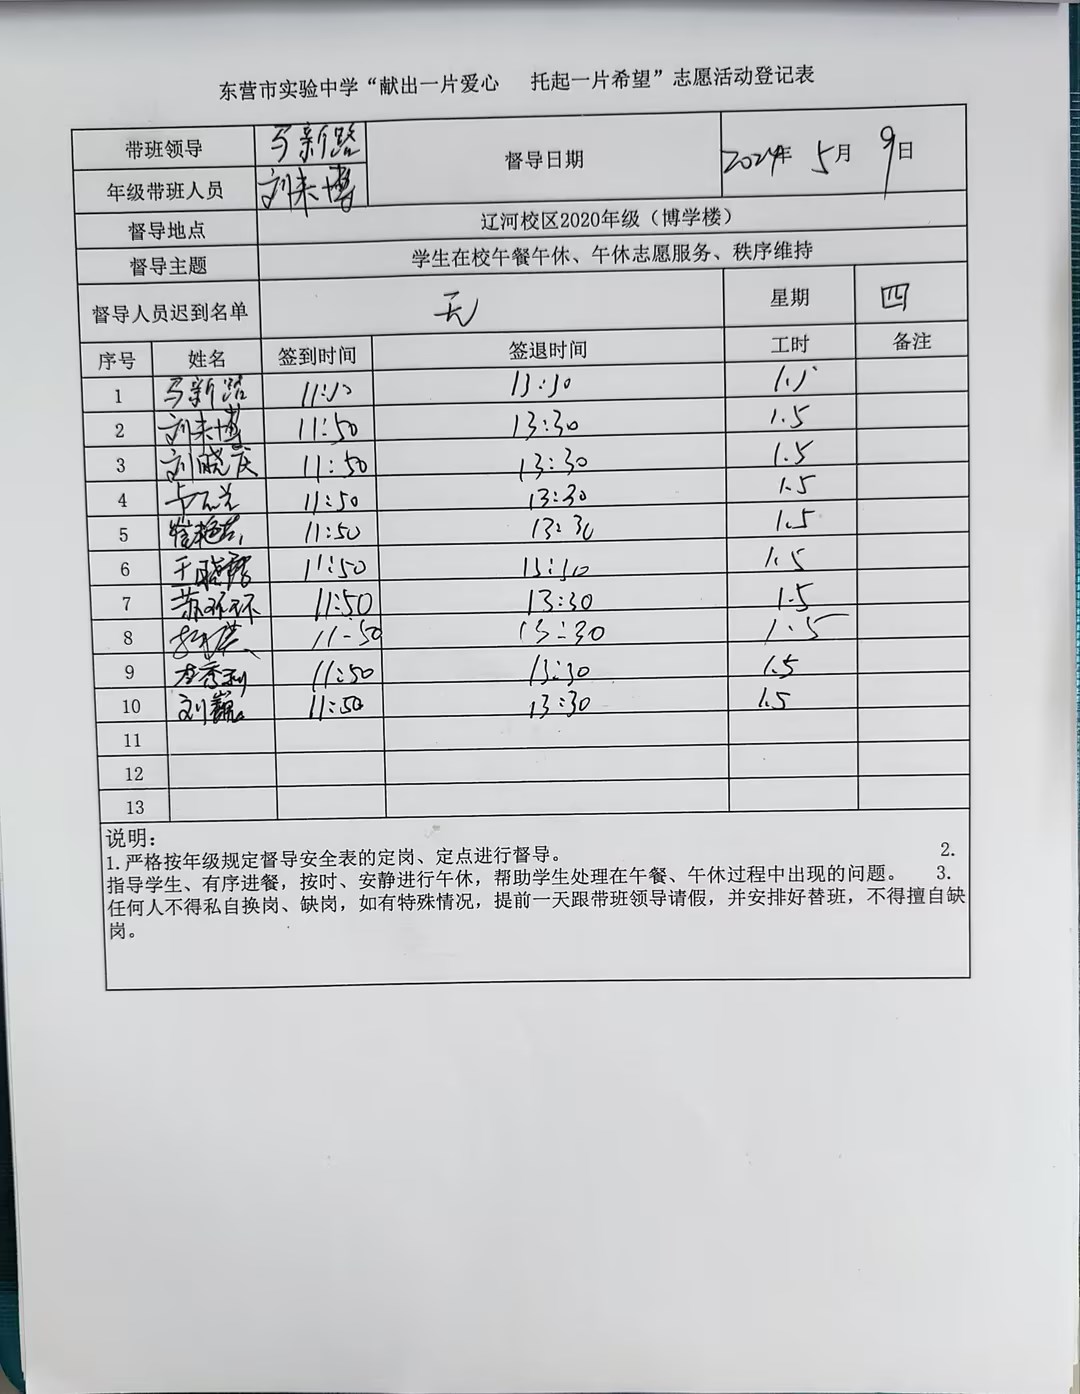 东营市实验中学“献出一片爱心 托起一片希望”志愿活动登记表
带班领导 马新路 督导日期 2024年 5月 9日
年级带班人员 刘来博
督导地点 辽河校区2020年级（博学楼）
督导主题 学生在校午餐午休、午休志愿服务、秩序维持
督导人员迟到名单 无 星期 四
序号 姓名 签到时间 签退时间 工时 备注
1 马新路 13:30
2 刘来博 11:50 13:30 1.5
3 刘晓庆 11:50 13:30 1.5
4 11:50 13:30 1.5
5 11:50 13:30 1.5
6 11:50 1.5
7 苏环环 11:50 13:30 1.5
8 11:50 13:30 1.5
9 李秀利 11:50 13:30 1.5
10 刘巍巍 11:50 13:30 1.5
11
12
13
说明：
1.严格按年级规定督导安全表的定岗、定点进行督导。 2.
指导学生、有序进餐，按时、安静进行午休，帮助学生处理在午餐、午休过程中出现的问题。 3.
任何人不得私自换岗、缺岗，如有特殊情况，提前一天跟带班领导请假，并安排好替班，不得擅自缺
岗。